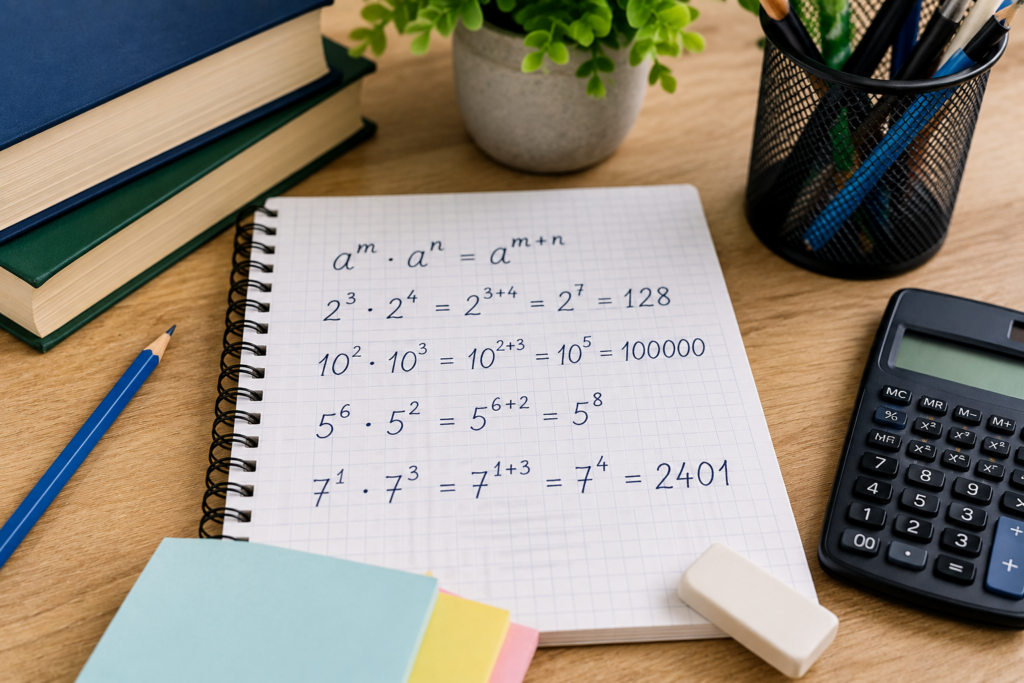 aᵐ · aⁿ = aᵐ⁺ⁿ
2³ · 2⁴ = 2³⁺⁴ = 2⁷ = 128
10² · 10³ = 10²⁺³ = 10⁵ = 100000
5⁶ · 5² = 5⁶⁺² = 5⁸
7¹ · 7³ = 7¹⁺³ = 7⁴ = 2401
MC MR M− M+
% x² x² x²
x² x²
7 8 9
4 5 3
1 2 3
00 · =
+
+